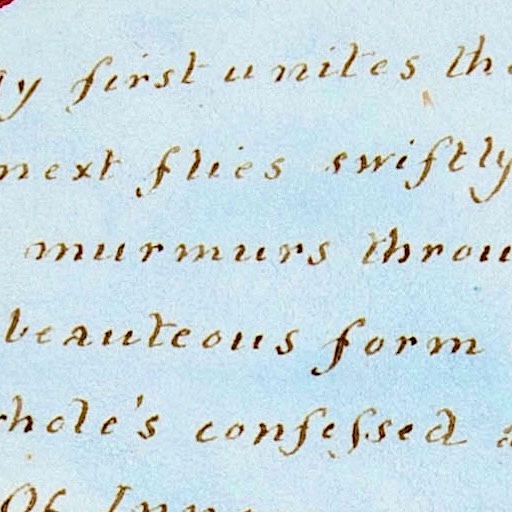 my ſirst unites the
next flies swiftly
murmurs throu
beauteous form
whole's confeſsed a
Of Inno